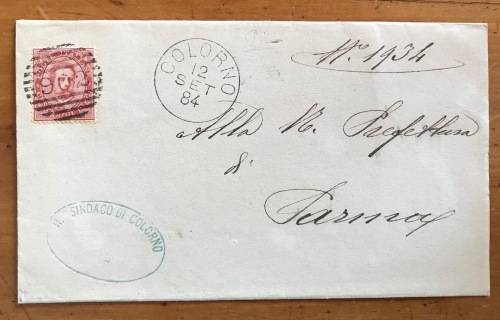 COLORNO
12
SET
84
N.º 1934
Alla R. Prefettura
di
Parma
IL SINDACO DI COLORNO